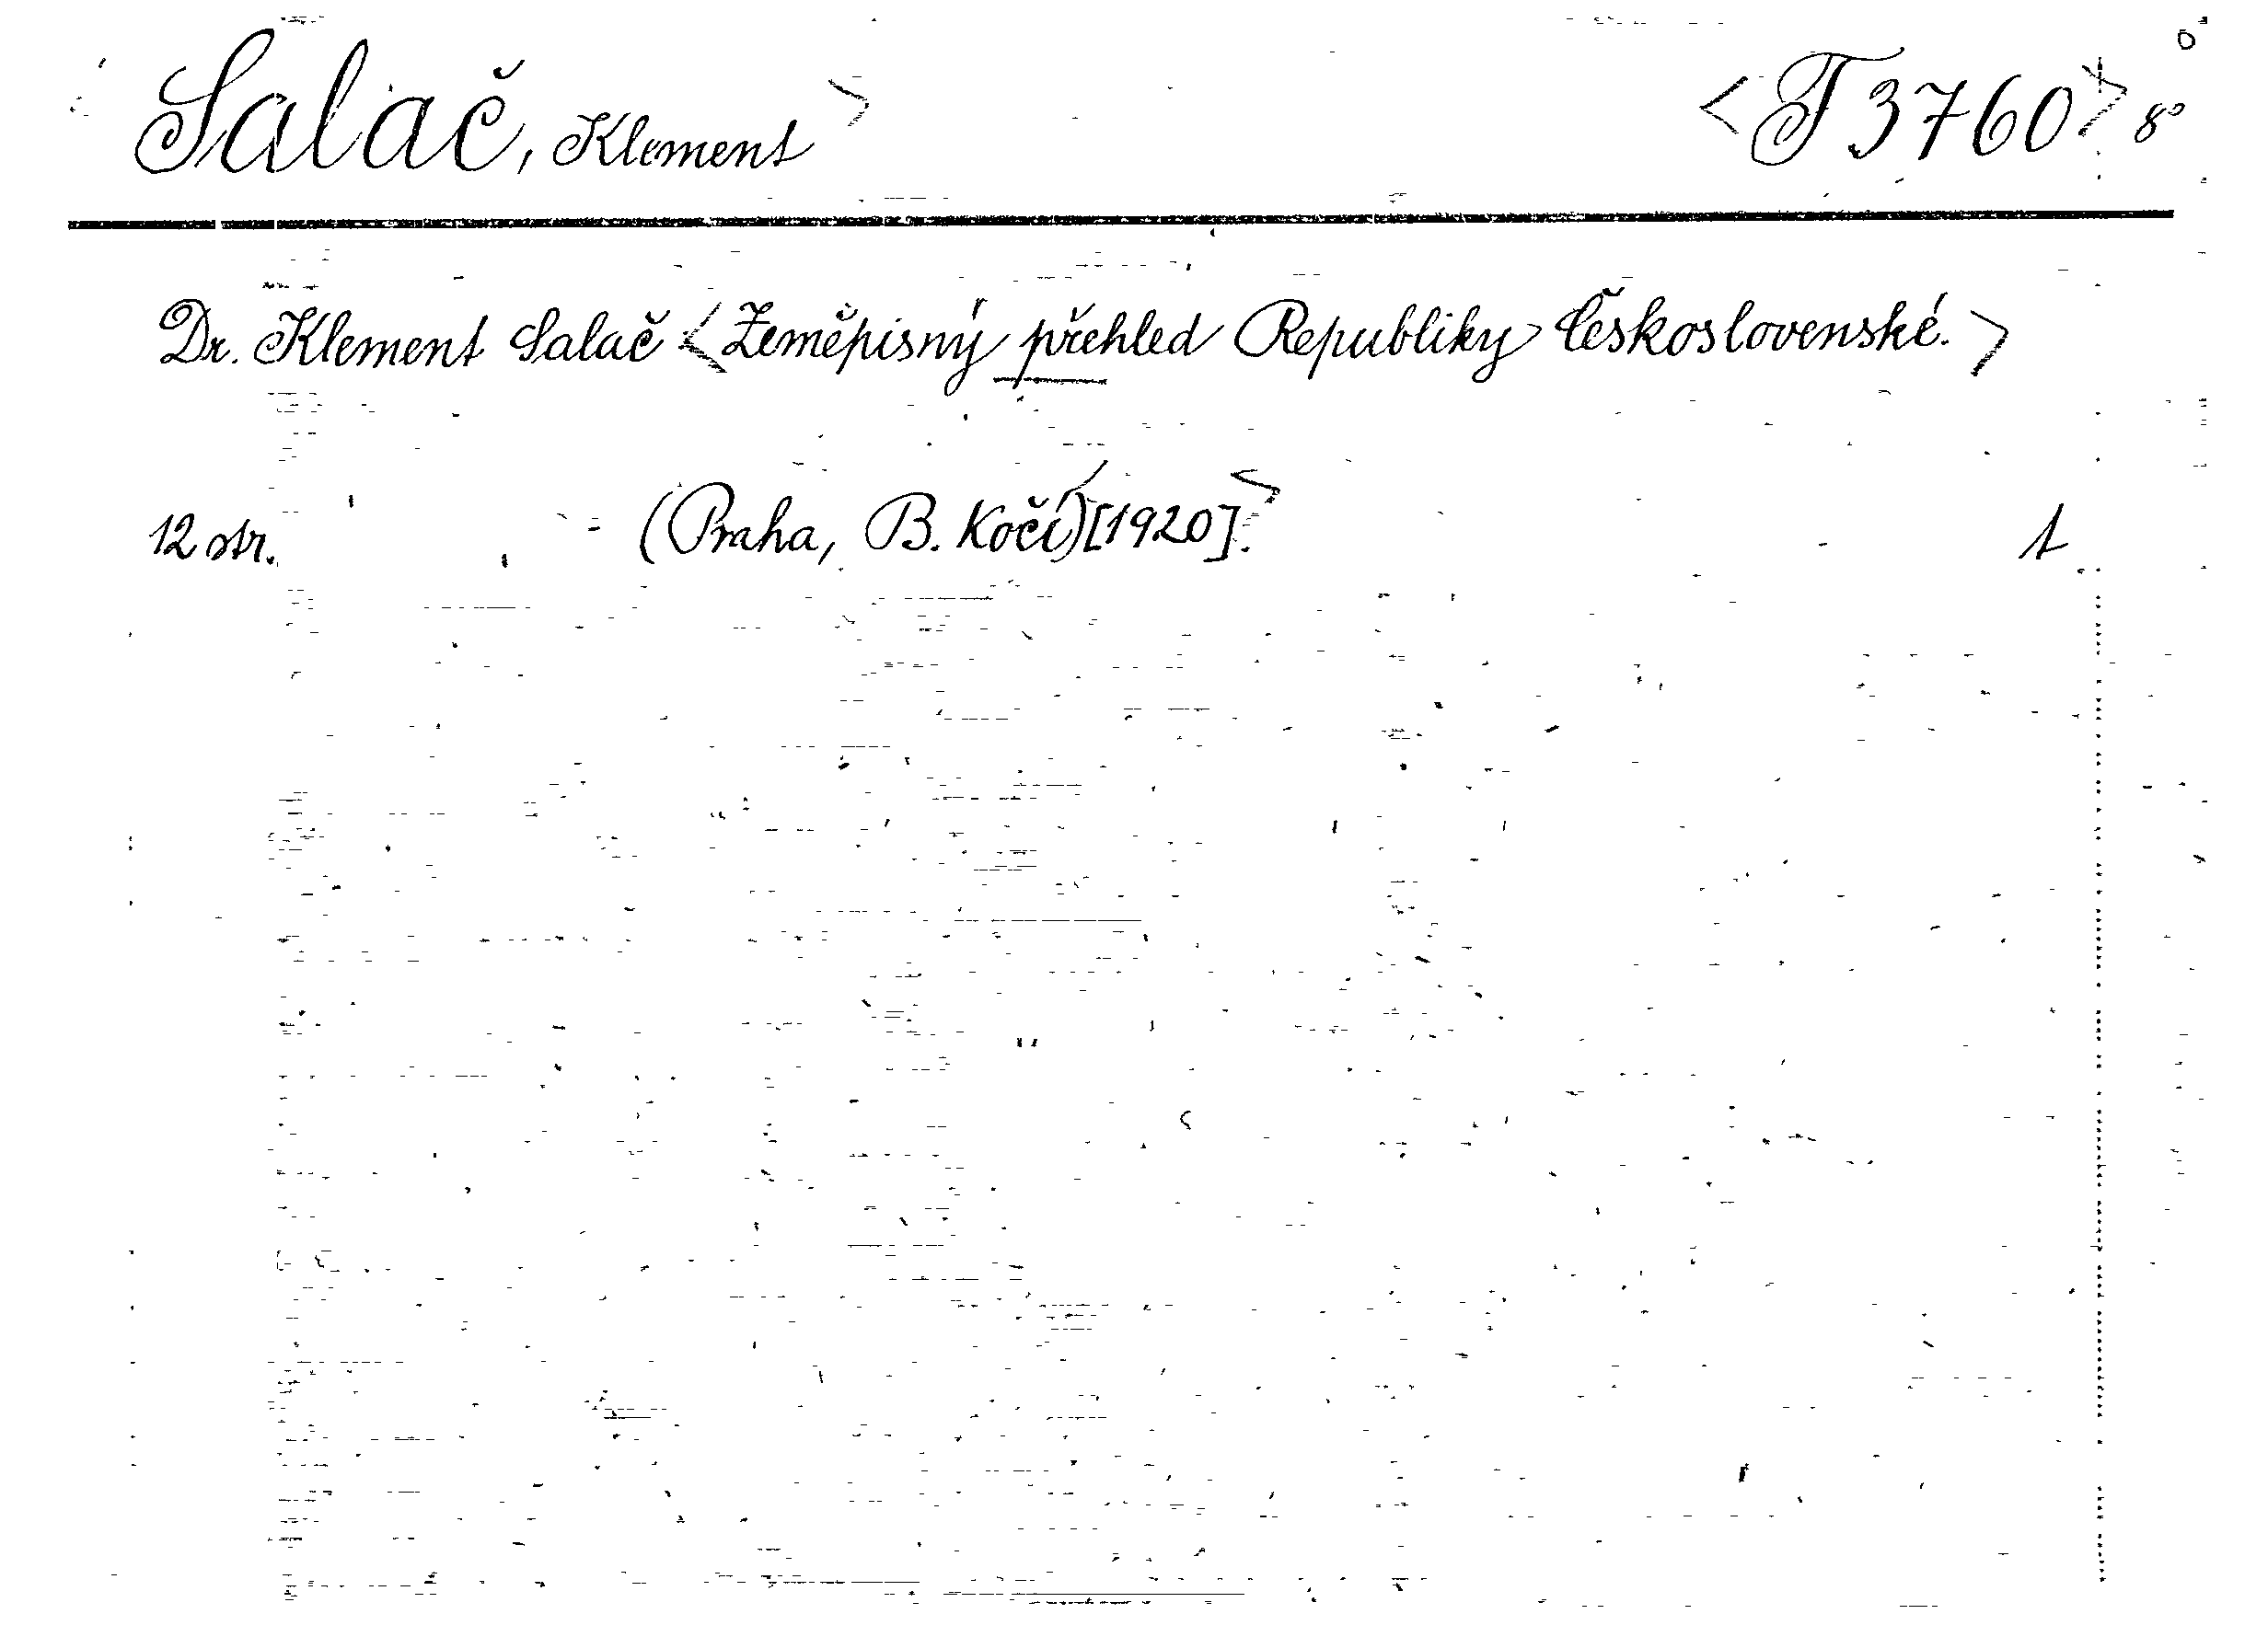 Salač, Klement > <T 3760> 8°
Dr. Klement Salač <Zeměpisný přehled Republiky Československé.>
12 str. (Praha, B. Kočí) [1920].> 1